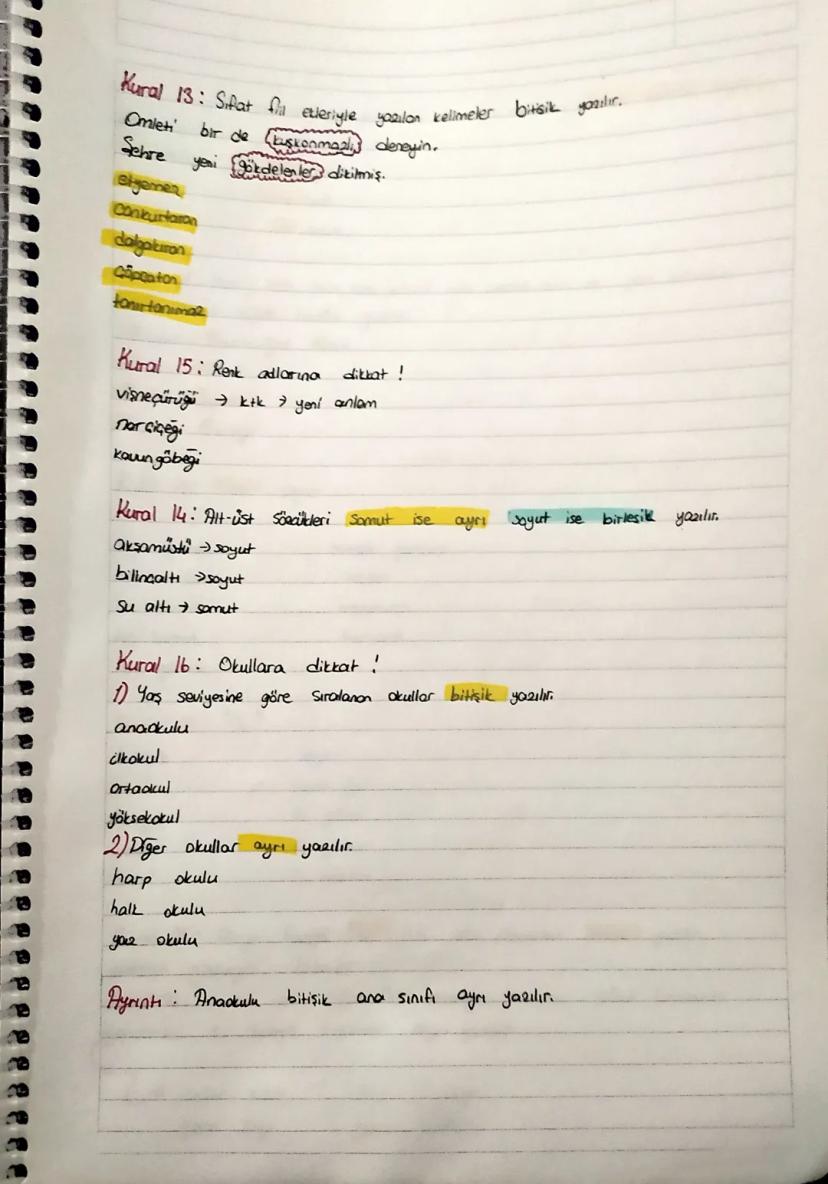 Kural 13: Sıfat fiil ekleriyle yazılan kelimeler bitişik yazılır.
Omleti bir de kuşkonmazlı deneyin.
Şehre yeni gökdelenler dikilmiş.
etyemez
cankurtaran
dalgakıran
çöpçatan
tanrıtanımaz
Kural 15: Renk adlarına dikkat !
vişneçürüğü → ktk → yeni anlam
narçiçeği
kavungöbeği
Kural 14: Alt-üst sözcükleri somut ise ayrı soyut ise birleşik yazılır.
akşamüstü → soyut
bilinçaltı → soyut
su altı → somut
Kural 16: Okullara dikkat !
1) Yaş seviyesine göre sıralanan okullar bitişik yazılır.
anaokulu
ilkokul
ortaokul
yüksekokul
2) Diğer okullar ayrı yazılır.
harp okulu
halk okulu
yaz okulu
Ayrıntı: Anaokulu bitişik ana sınıfı ayrı yazılır.